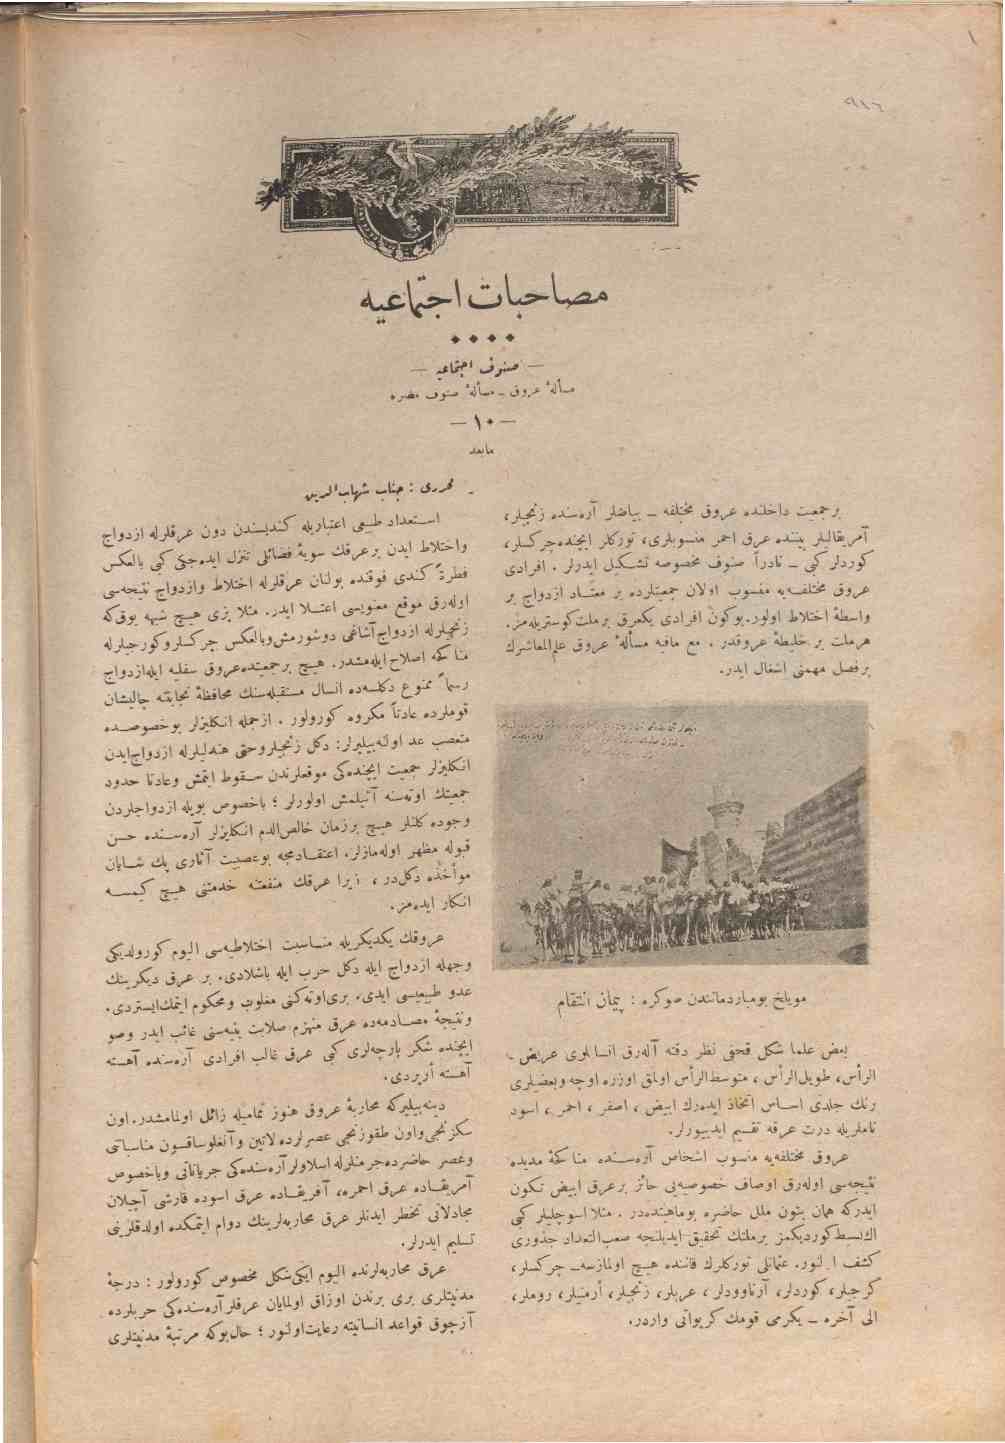 ٩١٦
مصاحبات اجتماعیه
— صنوف اجتماعیه —
مسألهٔ عروق ـ مسألهٔ صنوف مضره
— ١٠ —
مابعد
محرری : جناب شهاب‌الدین
بر جمعیت داخلنده عروق مختلفه ـ بیاضلر آره‌سنده زنجیلر،
آمریقالیلر بیننده عرق احمر منسوبلری، تورکلر ایچنده چرکسلر،
کوردلر کبی ـ نادراً صنوف مخصوصه تشکیل ایدرلر . افرادی
عروق مختلفه‌یه منسوب اولان جمعیتلرده بر معتاد ازدواج بر
واسطهٔ اختلاط اولور. بوکون افرادی یکعرق بر ملت کوستریله‌مز.
هر ملت بر خلیطهٔ عروقدر . مع مافیه مسألهٔ عروق علم‌المعاشرك
بر فصل مهمنی اشغال ایدر.
مویلح بومباردمانندن صوکره : پیمان انتقام
بعض علما شکل قحفی نظر دقته آله‌رق انسانلری عریض
الرأس، طویل‌الرأس ، متوسط‌الرأس اولمق اوزره اوچه وبعضیلری
رنك جلدی اساس اتخاذ ایده‌رك ابیض ، اصفر ، احمر ، اسود
ناملریله درت عرقه تقسیم ایدییورلر.
عروق مختلفه‌یه منسوب اشخاص آره‌سنده مناکحهٔ مدیده
نتیجه‌سی اوله‌رق اوصاف خصوصیه‌یی حائز بر عرق ابیض تکون
ایدرکه همان بتون ملل حاضره بوماهیتده‌در . مثلا اسوچلیلر کبی
اك بسیط کوردیکمز بر ملتك تحقیق ایدیلنجه صعب‌التعداد جذوری
کشف اولنور. عثمانلی تورکلرك قاننده هیچ اولمازسه ـ چرکسلر،
کرجیلر، کوردلر، آرناوودلر ، عربلر، زنجیلر، أرمنیلر، روملر،
الی آخره ـ یکرمی قومك کریواتی واردر.
استعداد طبیعی اعتباریله کندیسندن دون عرقلرله ازدواج
واختلاط ایدن بر عرقك سویهٔ فضائلی تنزل ایده‌جکی کبی بالعکس
فطرةً کندی فوقنده بولنان عرقلرله اختلاط وازدواج نتیجه‌سی
اوله‌رق موقع معنویسی اعتلا ایدر. مثلا بزی هیچ شبهه یوق‌که
زنجیلرله ازدواج آشاغی دوشورمش وبالعکس چرکسلر و کورجیلرله
مناکحه اصلاح ایله‌مشدر. هیچ بر جمعیتده عروق سفلیه ایله ازدواج
رسماً ممنوع دکلسه‌ده انسال مستقبله‌سنك محافظهٔ نجابتنه چالیشان
قوملرده عادتاً مکروه کورولور . ازجمله انکلیزلر بو خصوصده
متعصب عد اولنه‌بیلیرلر: دکل زنجیلر وحتی هندلیلرله ازدواج ایدن
انکلیزلر جمعیت ایچنده‌کی موقعلرندن سقوط ایتمش وعادتا حدود
جمعیتك اوته‌سنه آتیلمش اولورلر ؛ باخصوص بویله ازدواجلردن
وجوده کلنلر هیچ بر زمان خالص‌الدم انکلیزلر آره‌سنده حسن
قبوله مظهر اوله‌مازلر. اعتقادمجه بو عصبیت آثاری پك شایان
مؤاخذه دکلدر ، زیرا عرقك منفعتنه خدمتنی هیچ کیمسه
انکار ایده‌مز.
عروقك یکدیکریله مناسبت اختلاطیه‌سی الیوم کورولدیکی
وجهله ازدواج ایله دکل حرب ایله باشلادی. بر عرق دیکرینك
عدو طبیعیسی ایدی. بری اوته‌کنی مغلوب ومحکوم ایتمك ایستردی.
ونتیجهٔ مصادمه‌ده عرق منهزم صلابت بنیه‌سنی غائب ایدر وصو
ایچنده شکر پارچه‌لری کبی عرق غالب افرادی آره‌سنده آهسته
آهسته اریردی.
دینه‌بیلیرکه محاربهٔ عروق هنوز تمامیله زائل اولمامشدر. اون
سکزنجی واون طقوزنجی عصرلرده لاتین وآنغلوساقسون مناسباتی
وعصر حاضرده جرمنلرله اسلاولر آره‌سنده‌کی جریاناتی وباخصوص
آمریقاده عرق احمره، آفریقاده عرق اسوده قارشی آچیلان
مجادلاتی تخطر ایدنلر عرق محاربه‌لرینك دوام ایتمکده اولدقلرینی
تسلیم ایدرلر.
عرق محاربه‌لرنده الیوم ایکی شکل مخصوص کورولور : درجهٔ
مدنیتلری بری برندن اوزاق اولمایان عرقلر آره‌سنده‌کی حربلرده
آز چوق قواعد انسانیته رعایت اولنور ؛ حال‌بوکه مرتبهٔ مدنیتلری